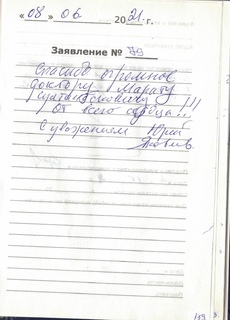 « 08 » 06 2021 г.
Заявление № 79
Спасибо огромное
доктору Марату
от всего сердца!!!
С уважением Юрий